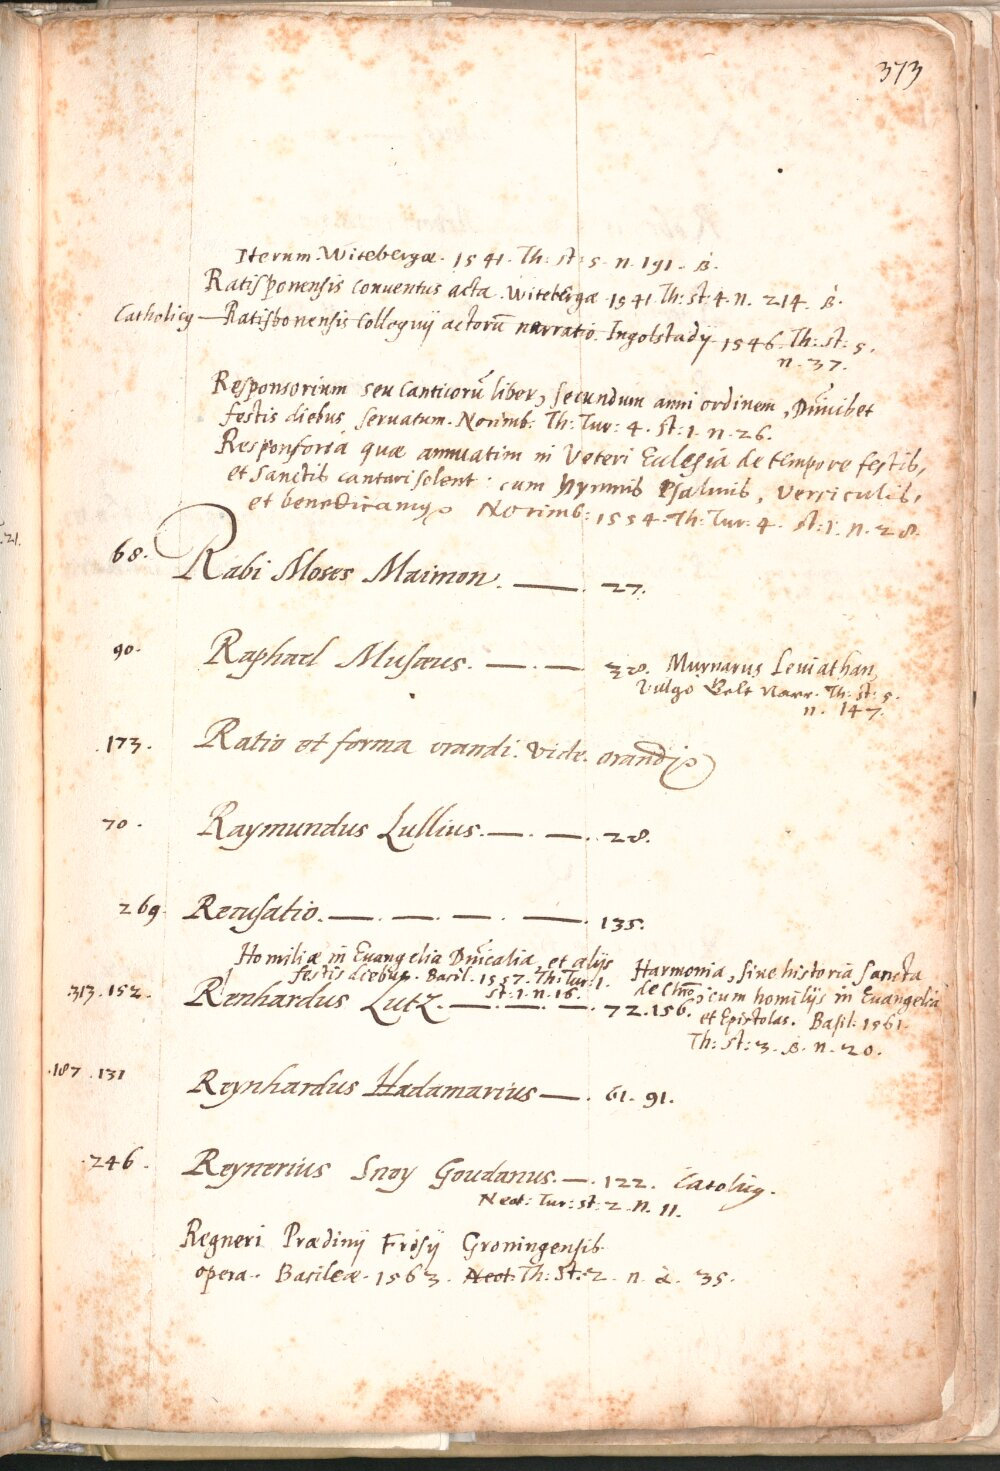 373
Iterum Witebergæ. 1541. Th: st: 5. n. 191. B.
Ratisponensis conventus acta. Witebergæ 1541 Th: st: 4. n. 214. B.
Catholicq — Ratisbonensis Colloquij actorū narratio. Ingolstadij 1546. Th: st: 5.
n. 37.
Responsorium seu Canticorū liber, secundum anni ordinem, Dnicibet
festis diebus servatum. Norimb: Th: Tur: 4. St: 1. n. 26.
Responsoria quæ annuatim in Veteri Ecclesia de tempore festis,
et Sanctis cantari solent: cum hymnis Psalmis, versiculis,
et benedicamus Norimb: 1554. Th: Tur: 4. st: 1. n. 28.
.21.
68. Rabi Moses Maimon. — 27.
90. Raphael Musæus. — . — 38. Murnarus Leviathan
Vulgo Narr. Th: st: 5.
n. 147.
173. Ratio et forma orandi. Vide. orandi
70. Raymundus Lullius. — . — . 28.
269 Recusatio. — . — . — . — . 135.
Homiliæ in Evangelia Dnicalia et alijs
festis diebus. Basil. 1557. Th: Tur: 1.
st: 1. n. 16.
313. 152. Renhardus Lutz. — . — . — . 72. 156.
Harmonia, sive historia sancta
de Chro, cum homilijs in Evangelia
et Epistolas. Basil. 1561.
Th: st: 3. B. n. 20.
187. 131 Reynhardus Hadamarius — . 61. 91.
246. Reynerius Snoy Goudanus. — . 122. Catoliq.
Neot: Tur: st: 2. n. 11.
Regneri Prædinij Frisij Groningensis
opera. Basileæ. 1563. Neot. Th: St: 2. n. 35.